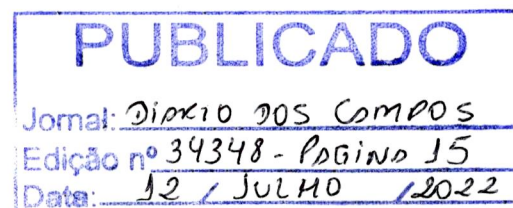 PUBLICADO
Jornal: DIARIO DOS CAMPOS
Edição nº 34348 - PAGINA 15
Data: 12 / JULHO / 2022